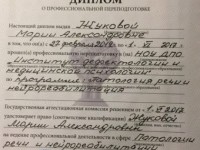 ДИПЛОМ
О ПРОФЕССИОНАЛЬНОЙ ПЕРЕПОДГОТОВКЕ
Настоящий диплом выдан Жуковой
Марии Александровне
в том, что он(а) с 27 февраля 2017 г. по 1. VI 2017 г.
прошел(а) профессиональную переподготовку в (на) НОИ ДПО
"Институт дефектологии и
медицинской психологии"
по программе "Патология речи и
нейрореабилитация"
Государственная аттестационная комиссия решением от 1. VI 2017
удостоверяет право (соответствие квалификации) Жуковой
Марии Александровны
на ведение профессиональной деятельности в сфере Патологии
речи и нейрореабилитации